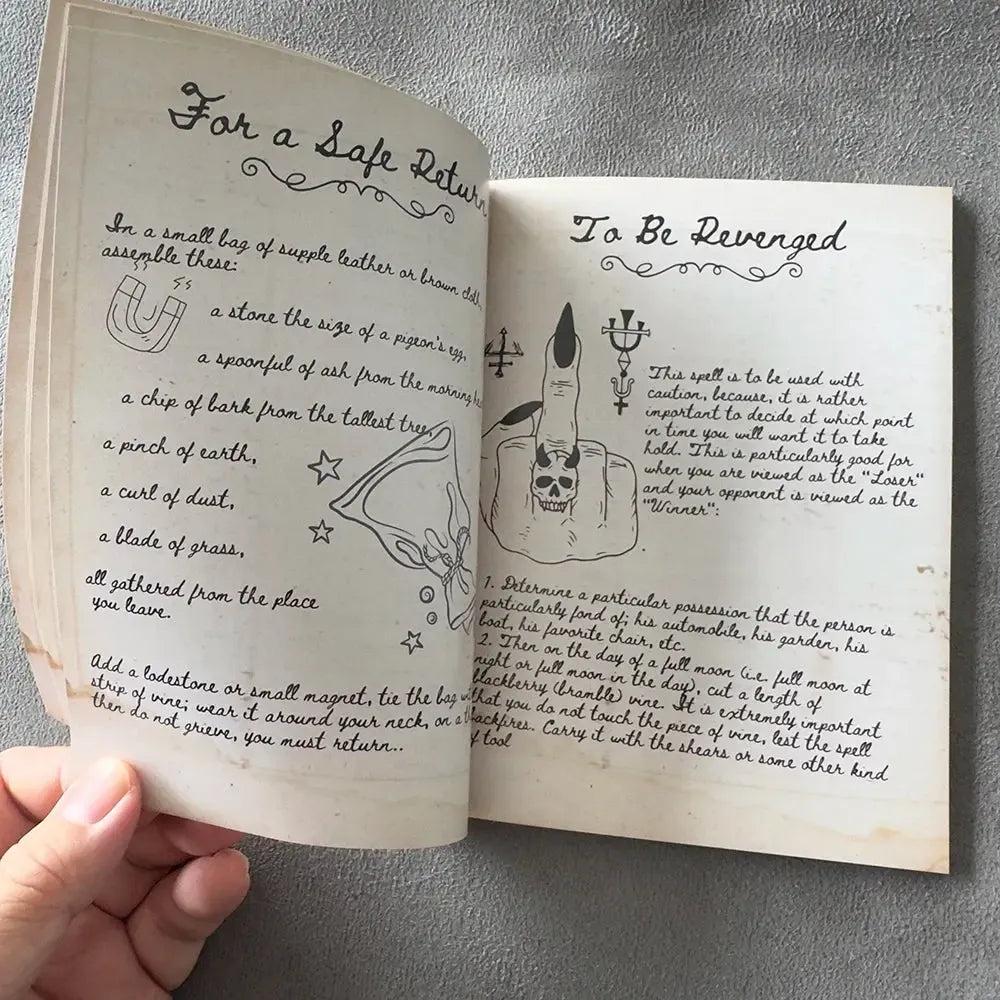 For a Safe Return
In a small bag of supple leather or brown cloth,
assemble these:
a stone the size of a pigeon's egg,
a spoonful of ash from the morning
a chip of bark from the tallest tree,
a pinch of earth,
a curl of dust,
a blade of grass,
all gathered from the place
you leave.
Add a lodestone or small magnet, tie the bag
strip of vine; wear it around your neck, on a
then do not grieve, you must return..
To Be Revenged
This spell is to be used with
caution, because, it is rather
important to decide at which point
in time you will want it to take
hold. This is particularly good for
when you are viewed as the "Loser"
and your opponent is viewed as the
"Winner":
1. Determine a particular possession that the person is
particularly fond of; his automobile, his garden, his
boat, his favorite chair, etc.
2. Then on the day of a full moon (i.e. full moon at
night or full moon in the day), cut a length of
blackberry (bramble) vine. It is extremely important
that you do not touch the piece of vine, lest the spell
backfires. Carry it with the shears or some other kind
of tool